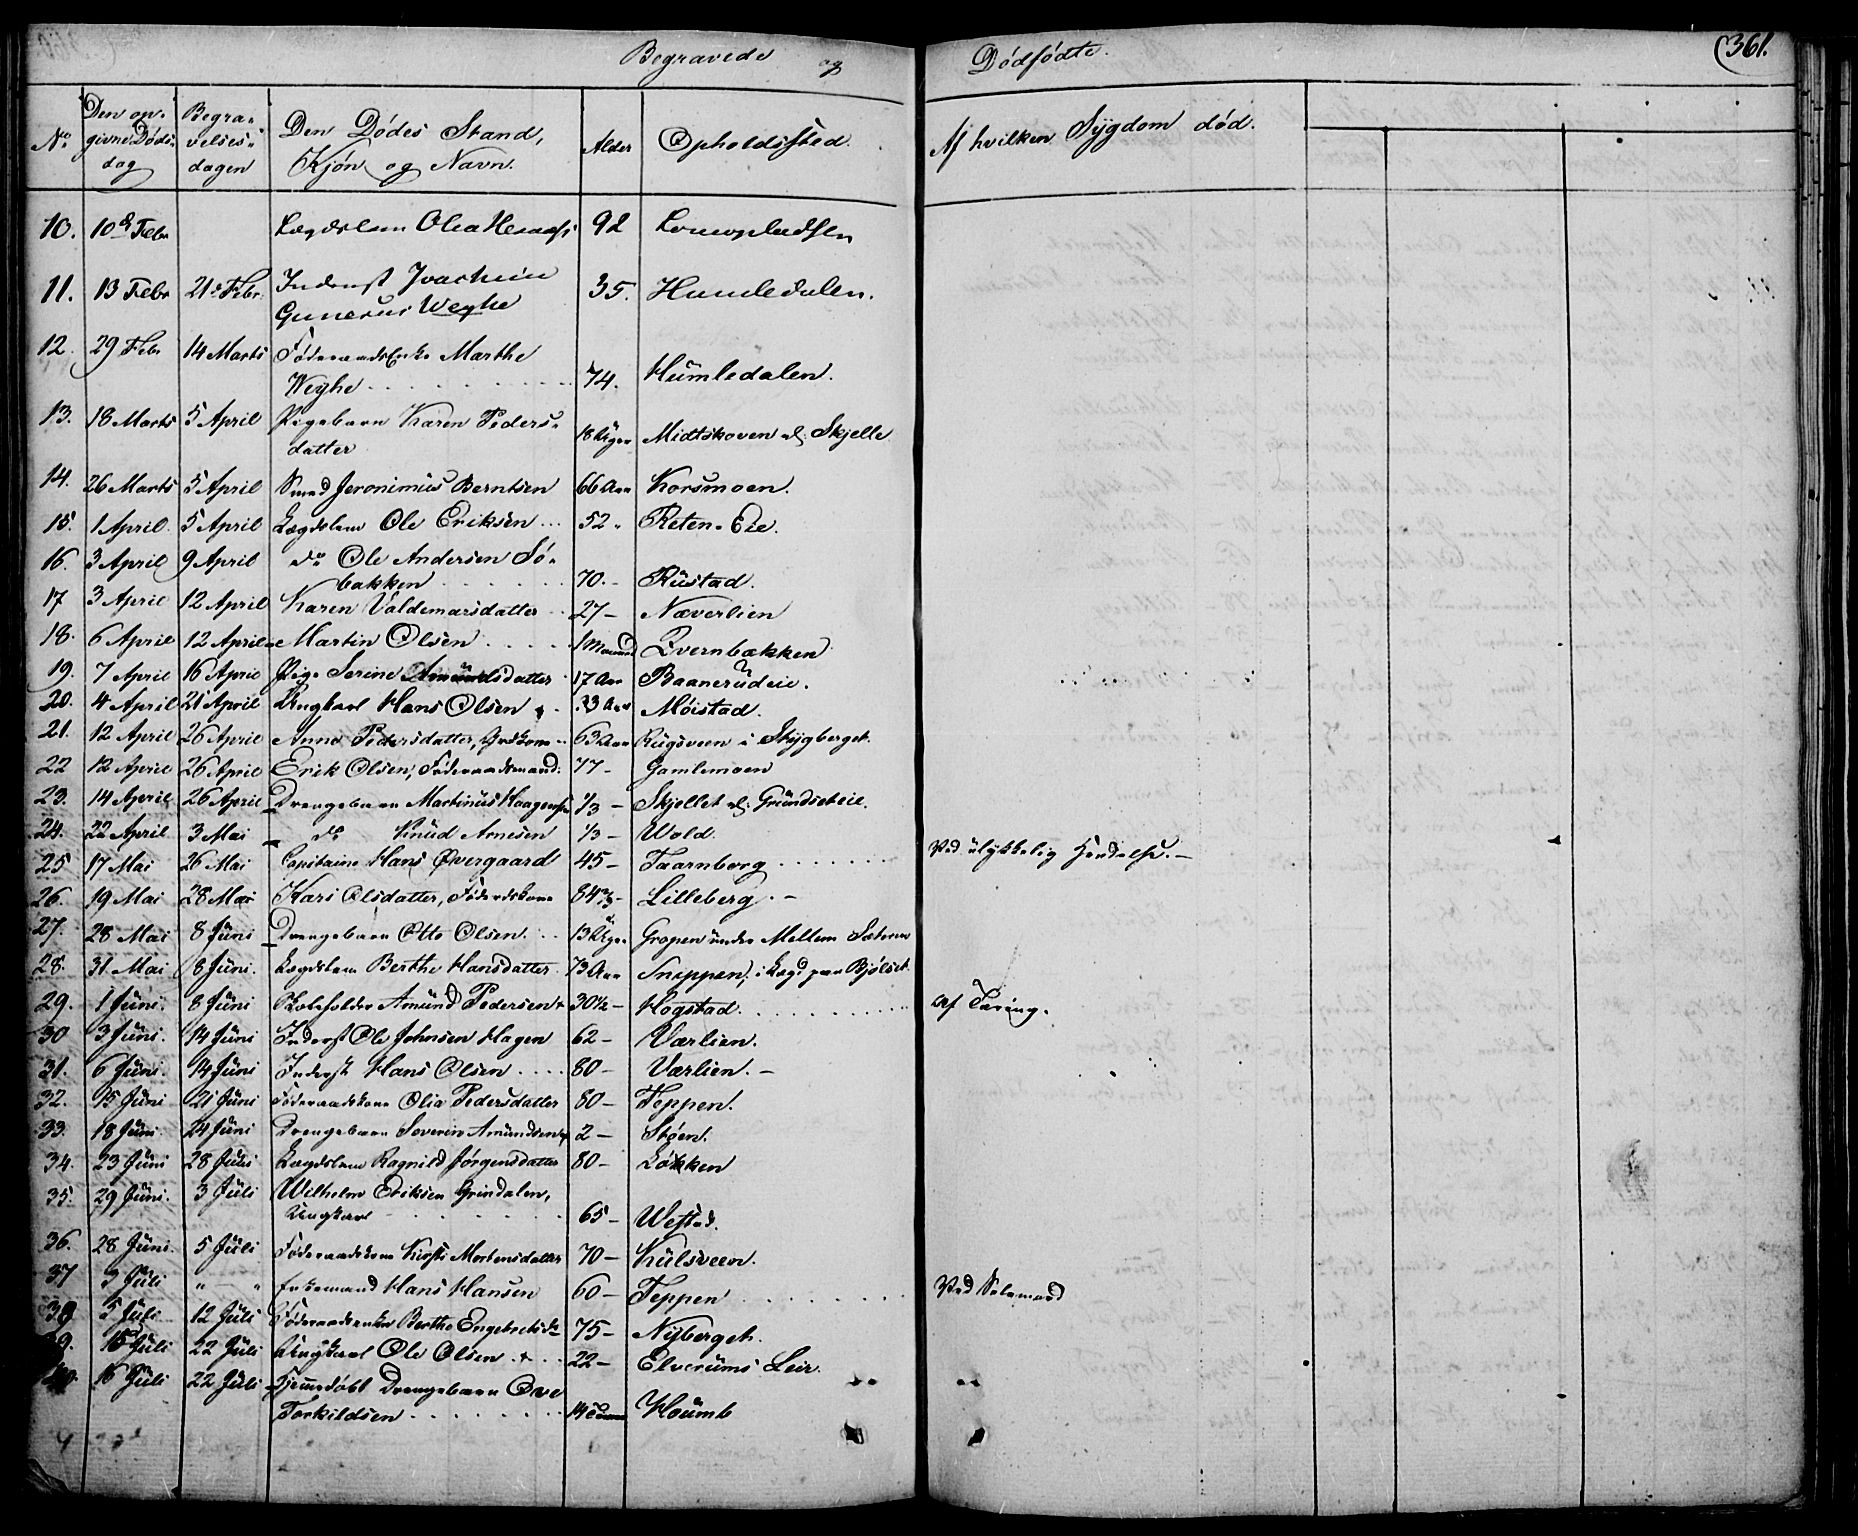 Begravede og Dødfødte. 361.
No. Den opgivne Dødsdag Begravelsesdagen Den Dødes Stand, Kjøn og Navn. Alder Opholdssted. Af hvilken Sygdom død.
10. 10de Febr Lægdslem Olea 92
11. 13 Febr 21de Febr. Inderst Joachim
Gunerus Weyhe 35. Humledalen.
12. 29 Febr 14 Marts Føderaadsenke Marthe
Weyhe 74. Humledalen.
13. 18 Marts 5 April Pigebarn Karen Peders-
datter 18 Uger Midtskoven Skjelle
14. 26 Marts 5 April Smed Jeronimus Berntsen 66 Aar Korsmoen.
15. 1 April 5 April Lægdslem Ole Eriksen 52 " Reten-Eie.
16. 3 April 9 April do Ole Andersen Sø-
bakken 70.- Rustad.
17 3 April 12 April Karen Valdemarsdatter 27- Næverlien
18. 6 April 12 April Martin Olsen 1 Maaned Qvernbækken
19. 7 April 16 April Pige Serine Amundsdatter 17 Aar Baanerudeie.
20. 4 April 21 April Ungkarl Hans Olsen 33 Aar Møistad.
21. 12 April 26 April Anne Pedersdatter, Grdkone 63 Aar Rugsveen i Skygberget.
22 12 April 26 April Erik Olsen, Føderaadsmand. 77- Gamlemoen
23. 14 April 26 April Drengebarn Martinus Haagensen 1/3- Skjellet Grundseteie.
24. 22 April 3 Mai do Knud Arnesen 1/3- Wold.
25 17 Mai 26 Mai Capitaine Hans Øvergaard 45- Taarnborg Ved ulykkelig Hendelse.-
26. 19 Mai 28 Mai Kari Olsdatter, Føderdskone 84 Lilleberg.-
27. 28 Mai 8 Juni Drengebarn Otto Olsen. 13 Uger Gropen under Mellem Sæteren
28. 31 Mai 8 Juni. Lægdslem Berthe Hansdatter 73 Aar Snippen, i Lægd paa Bjølset
29. 1 Juni 8 Juni Skoleholder Amund Pedersen 30½- Hogstad. Af Tæring.
30 3 Juni. 14 Juni Inderst Ole Johnsen Hagen 62- Værlien.
31. 6 Juni. 14 Juni Inderst Hans Olsen 80- Værlien.-
32. 15 Juni 21 Juni Føderaadskone Olia Pedersdatter 80- Teppen.
33. 18 Juni. 24 Juni Drengebarn Severin Amundsen 2- Støen.
34. 23 Juni 28 Juni Lægdslem Ragnild Jørgensdatter 80- Løkken
35. 29 Juni. 3 Juli Wilhelm Eriksen Grindalen,
Ungkarl 65- Westad.
36. 28 Juni. 5 Juli Føderaadskone Kirsti Mortensdatter 70- Kulsveen.
37 3 Juli " " Enkemand Hans Hansen 60- Teppen Ved Selvmord
38 5 Juli 12 Juli Føderaadsenke Berthe Engebretsdr 75- Nyberget.
39. 15 Juli 22 Juli Ungkarl Ole Olsen 22- Elverums Leir.
40. 16 Juli 22 Juli Hjemmedøbt Drengebarn Ove
Torkildsen 14 Houmb